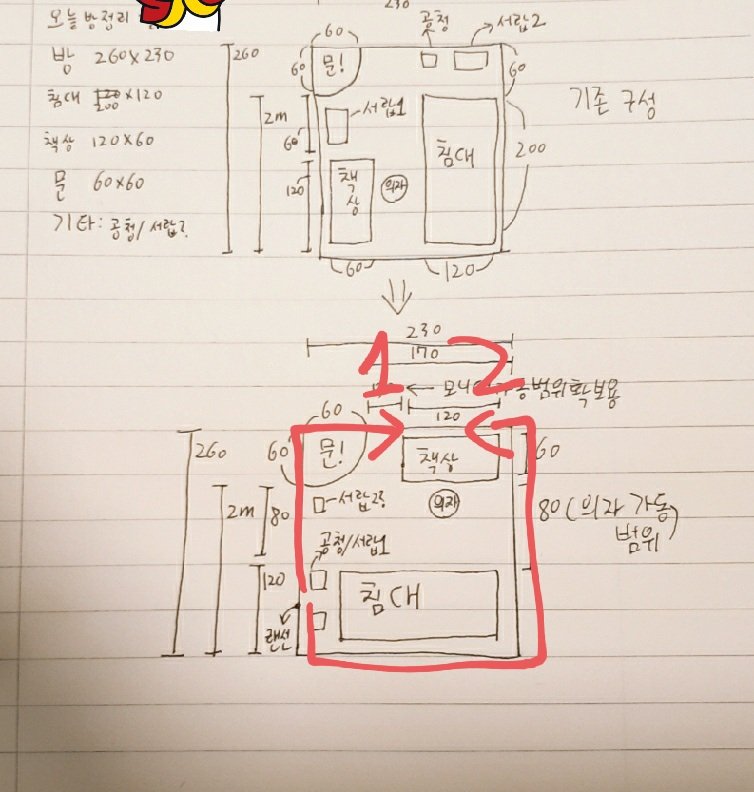 오늘 방정리
방 260×230
침대 200×120
책상 120×60
문 60×60
기타: 공청/서랍2
230
60
공청
서랍2
260
60
문!
60
2m
서랍1
60
침대
기존 구성
200
120
책상
의자
60
120
230
170
1 2
120
60
260
60
문!
책상
60
서랍2
의자
2m
80
80 (의자 가동범위)
공청/서랍1
120
침대
랜선